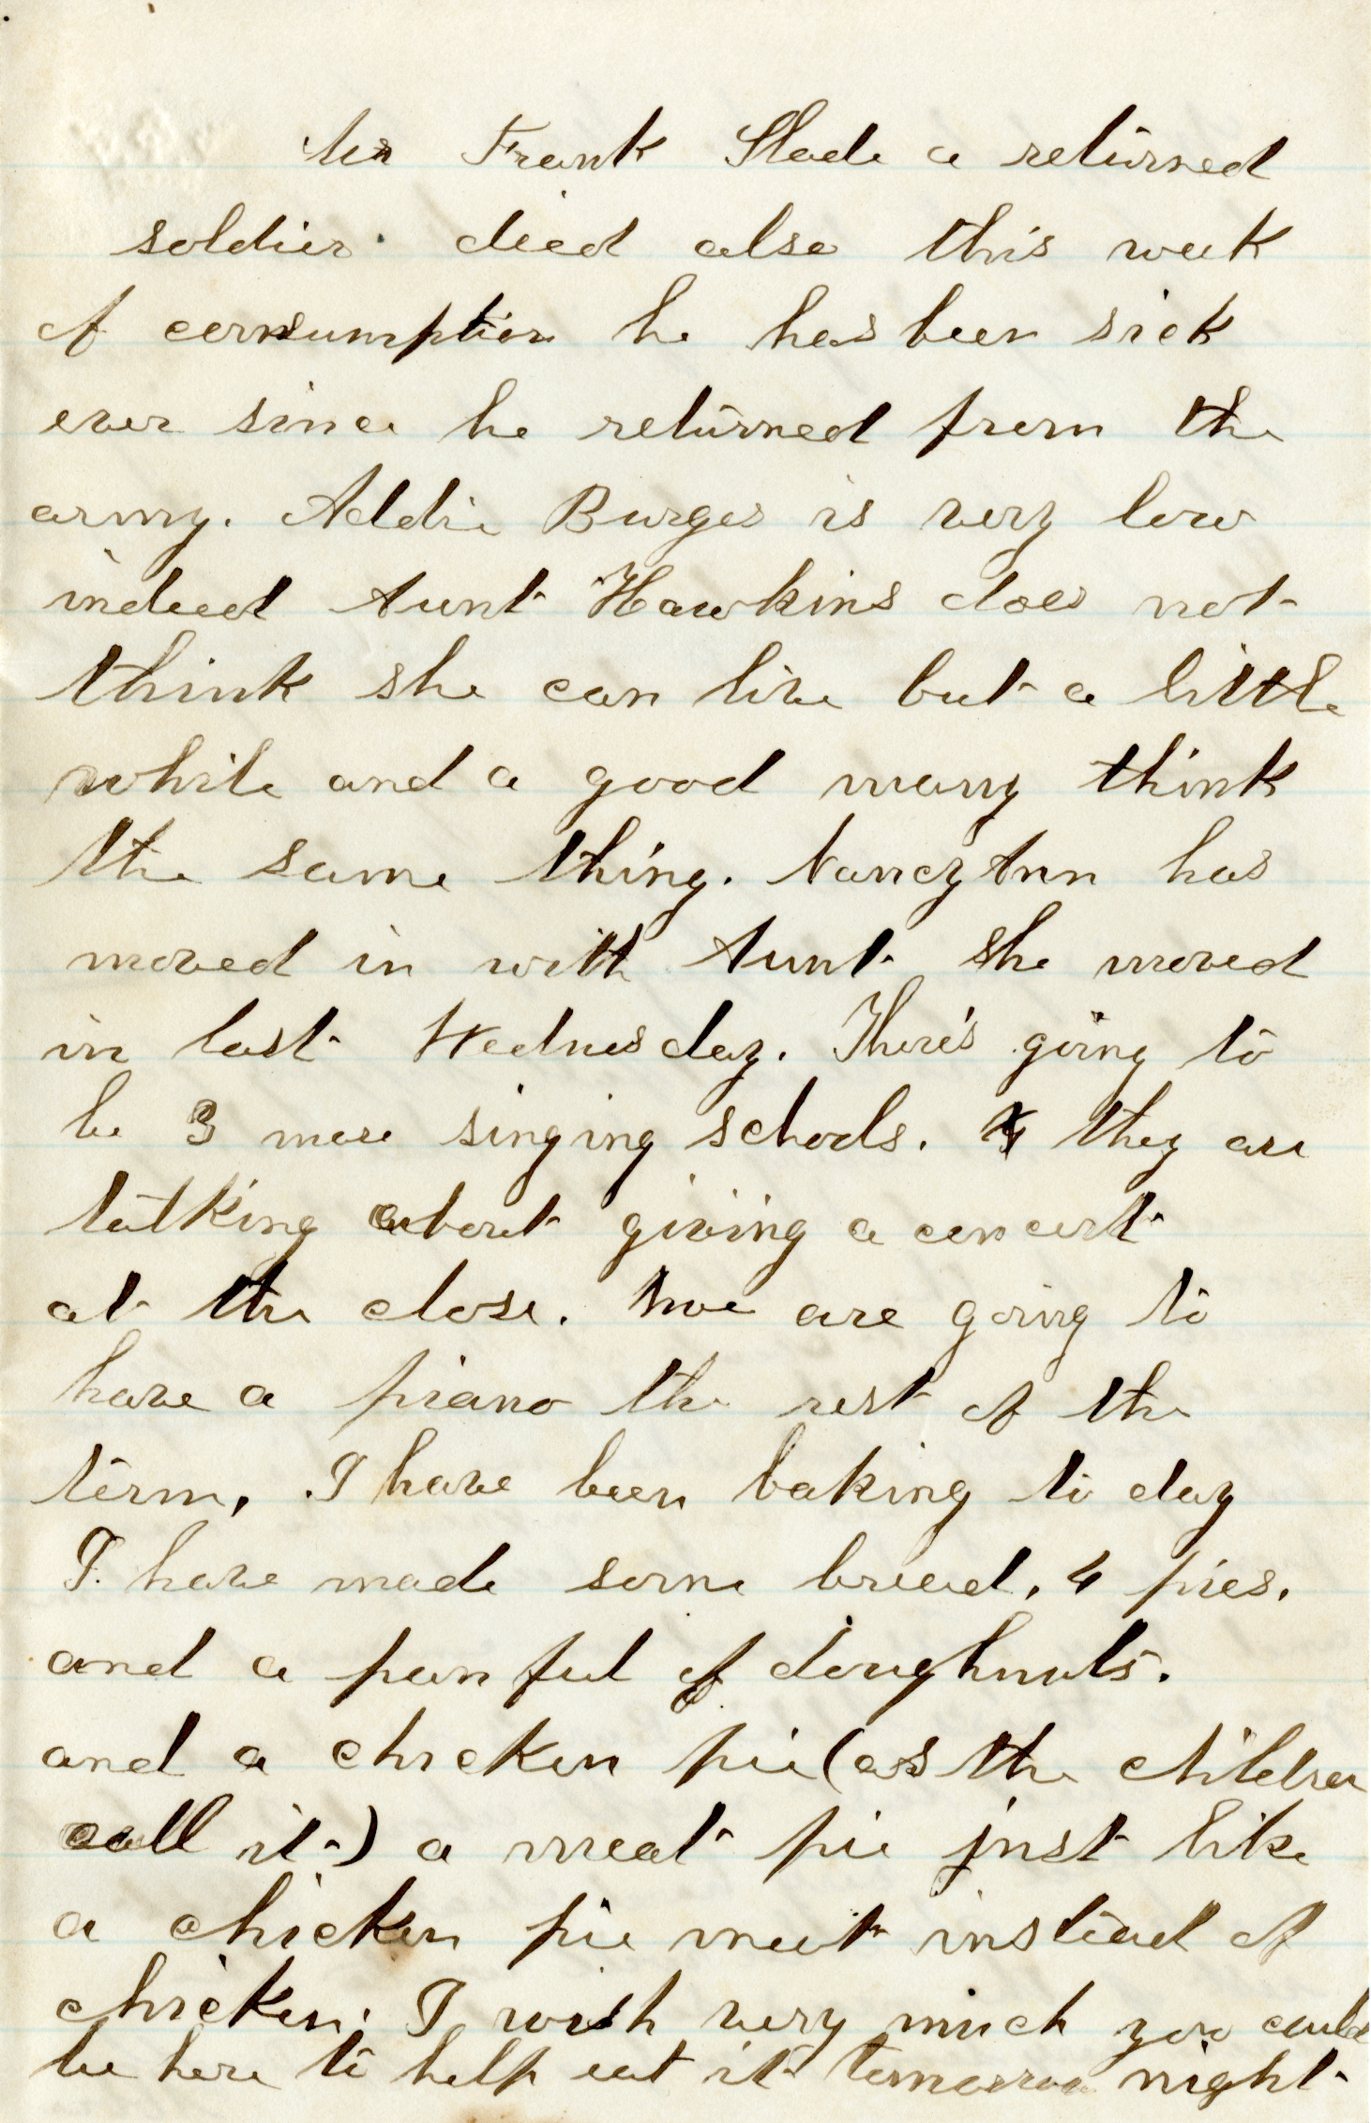 Mr Frank Slade a returned
soldier died also this week
of consumption he has been sick
ever since he returned from the
army. Addie Burges is very low
indeed Aunt Hawkins does not
think she can live but a little
while and a good many think
the same thing. Nancy Ann has
moved in with Aunt she moved
in last Wednesday. There's going to
be 3 more singing schools. they are
talking about giving a concert
at the close. we are going to
have a piano the rest of the
term, I have been baking to day
I have made some bread, 4 pies,
and a pan ful of doughnuts.
and a chicken pie (as the children
call it) a meat pie just like
a chicken pie meat instead of
chicken. I wish very much you could
be here to help eat it tomorrow night